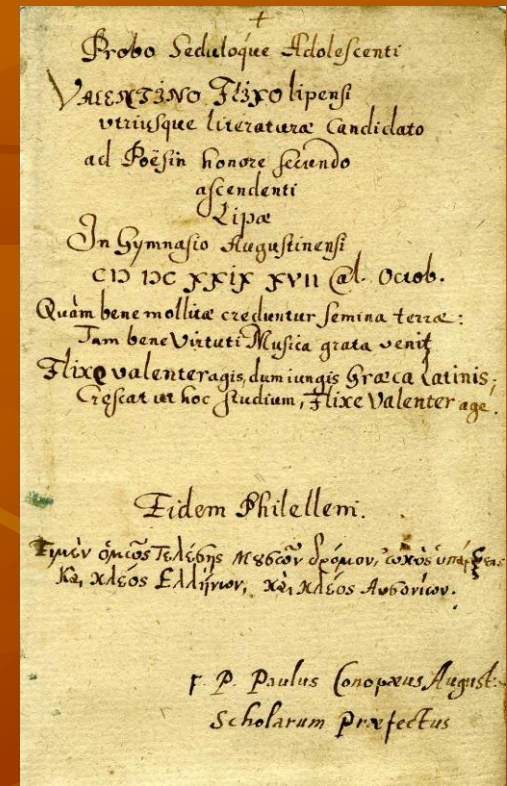 +
Probo Seduloque Adolescenti
VALENTINO Flixo lipensi
utriusque literaturæ Candidato
ad Poësin honore secundo
ascendenti
Lipæ
In Gymnasio Augustinensi
CIↃ IↃC XXIX XVII Cal. Octob.
Quàm bene mollitæ creduntur semina terræ:
Tam bene Virtuti Musica grata venit
Flixe valenter agis, dum iungis Græca Latinis;
Crescat ut hoc studium, Flixe Valenter age.
Eidem Philelleni.
ὁμῶς Τελέσῃς δρόμον,
Καὶ κλέος Ἑλλήνων, καὶ κλέος Αὐσονίων.
F. P. Paulus Conopæus August.
Scholarum Præfectus